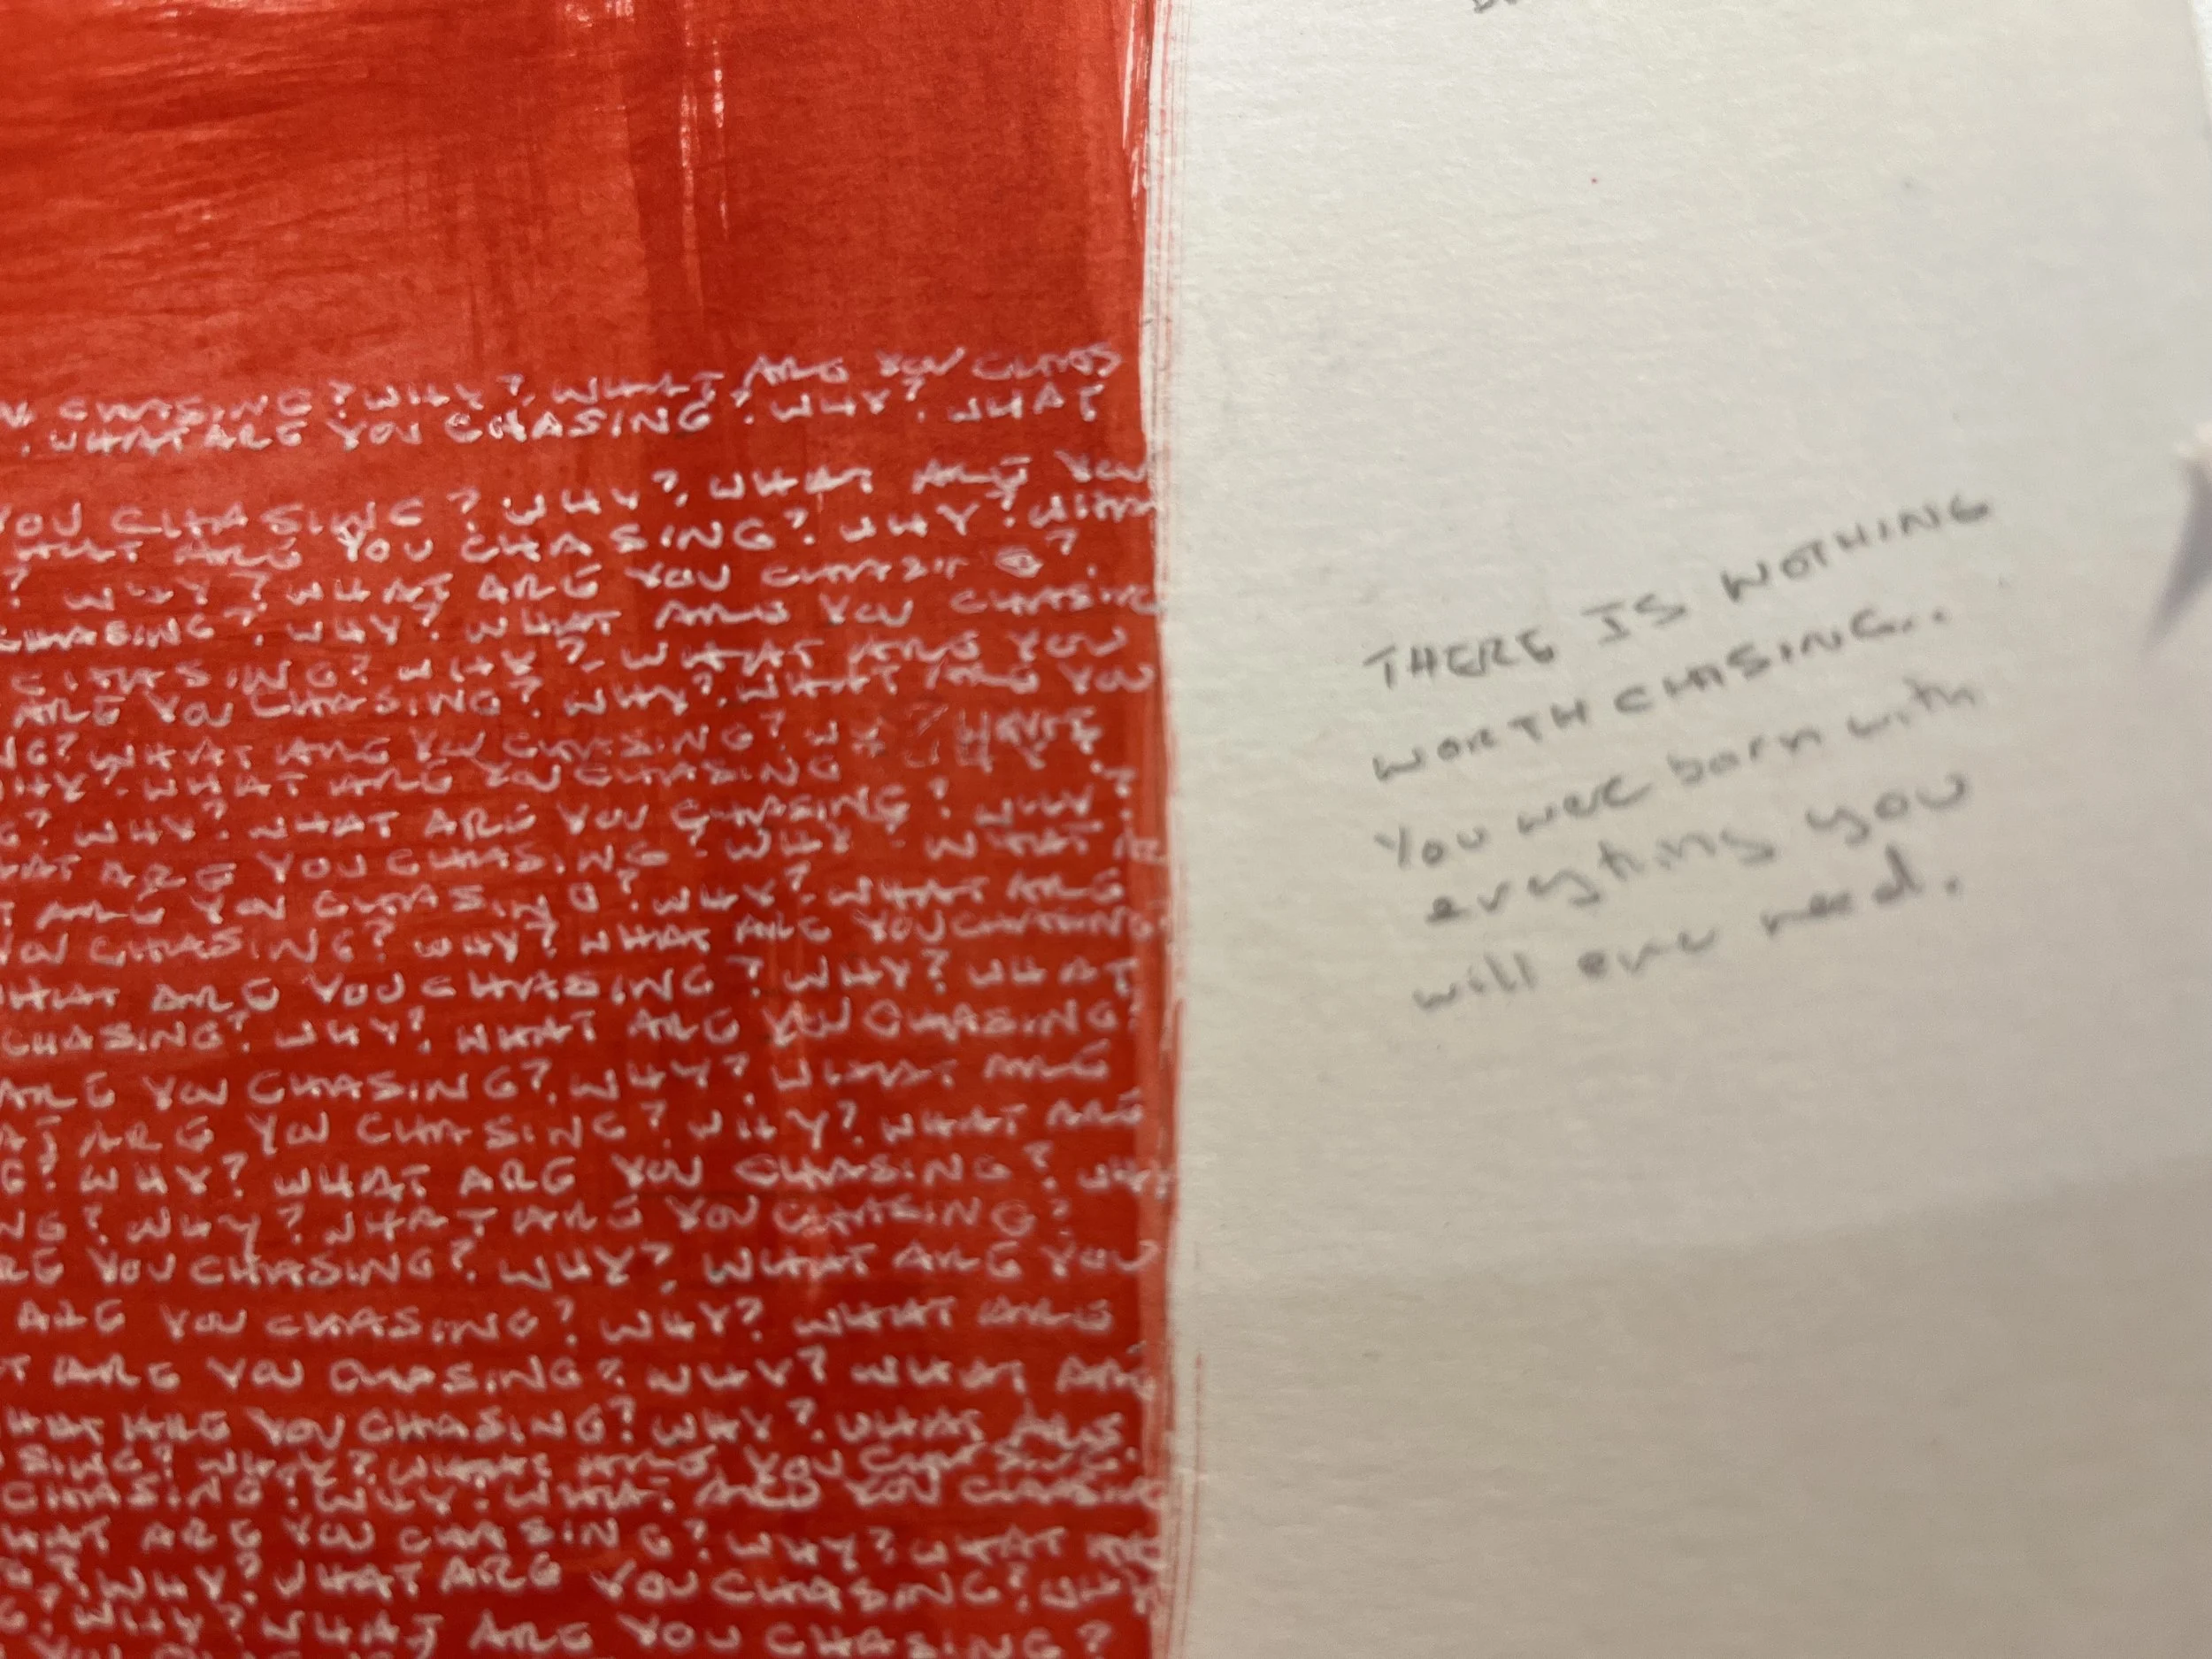 CHASING? WHY? WHAT ARE YOU CHAS
. WHAT ARE YOU CHASING? WHY? WHAT
YOU CHASING? WHY? WHAT ARE YOU
WHAT ARE YOU CHASING? WHY? WHAT
? WHY? WHAT ARE YOU CHASING?
CHASING? WHY? WHAT ARE YOU CHASING
CHASING? WHY? WHAT ARE YOU
ARE YOU CHASING? WHY? WHAT ARE YOU
NG? WHAT ARE YOU CHASING?
HY? WHAT ARE YOU CHASING
G? WHY? WHAT ARE YOU CHASING? WHY?
HAT ARE YOU CHASING? WHY? WHAT
T ARE YOU CHASING? WHY? WHAT ARE
YOU CHASING? WHY? WHAT ARE YOU CHASING
HAT ARE YOU CHASING? WHY? WHAT
CHASING? WHY? WHAT ARE YOU CHASING?
ARE YOU CHASING? WHY? WHAT ARE
AT ARE YOU CHASING? WHY? WHAT ARE
G? WHY? WHAT ARE YOU CHASING? WHY
NG? WHY? WHAT ARE YOU CHASING?
RE YOU CHASING? WHY? WHAT ARE YOU
ARE YOU CHASING? WHY? WHAT ARE
T ARE YOU CHASING? WHY? WHAT ARE
HAT ARE YOU CHASING? WHY? WHAT ARE
SING? WHY? WHAT ARE YOU CHASING
CHASING? WHY? WHAT ARE YOU CHASING
HAT ARE YOU CHASING? WHY? WHAT ARE
G? WHY? WHAT ARE YOU CHASING? WHY
G? WHY? WHAT ARE YOU CHASING?
THERE IS NOTHING
WORTH CHASING..
You were born with
everything you
will ever need.